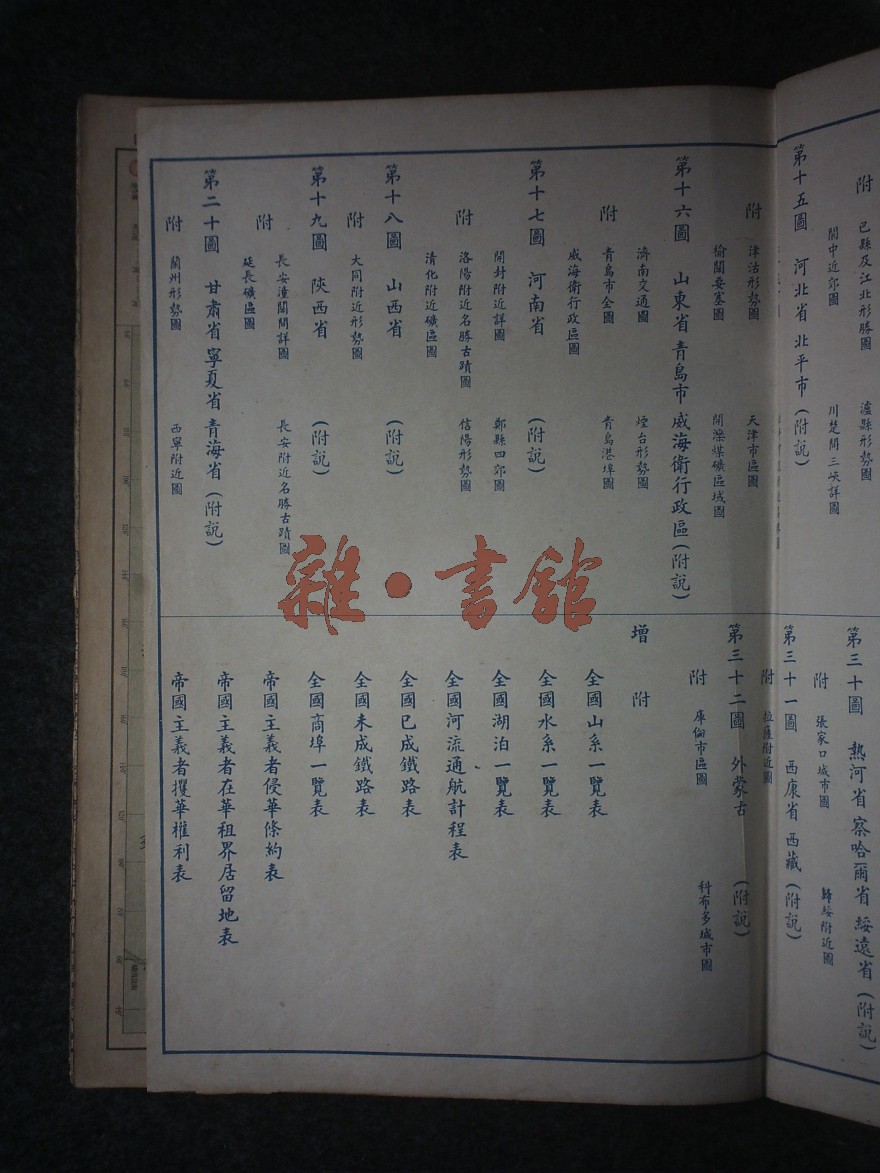 附
巴縣及江北形勝圖
瀘縣形勢圖
閬中近郊圖
川楚間三峽詳圖
第十五圖 河北省 北平市 (附說)
附
津沽形勢圖
天津市區圖
榆關要塞圖
開灤煤礦區域圖
第十六圖 山東省 青島市 威海衛行政區 (附說)
濟南交通圖
煙台形勢圖
附
青島市全圖
青島港埠圖
威海衛行政區圖
第十七圖 河南省 (附說)
開封附近詳圖
鄭縣四郊圖
附
洛陽附近名勝古蹟圖
信陽形勢圖
清化附近礦區圖
第十八圖 山西省 (附說)
附
大同附近形勢圖
第十九圖 陝西省 (附說)
長安潼關間詳圖
長安附近名勝古蹟圖
附
延長礦區圖
第二十圖 甘肅省 寧夏省 青海省 (附說)
附
蘭州形勢圖
西寧附近圖
第三十圖 熱河省 察哈爾省 綏遠省 (附說)
附
張家口城市圖
歸綏附近圖
第三十一圖 西康省 西藏 (附說)
附
拉薩附近圖
第三十二圖 外蒙古 (附說)
附
庫倫市區圖
科布多城市圖
增 附
全國山系一覽表
全國水系一覽表
全國湖泊一覽表
全國河流通航計程表
全國已成鐵路表
全國未成鐵路表
全國商埠一覽表
帝國主義者侵華條約表
帝國主義者在華租界居留地表
帝國主義者攫華權利表
雜·書館